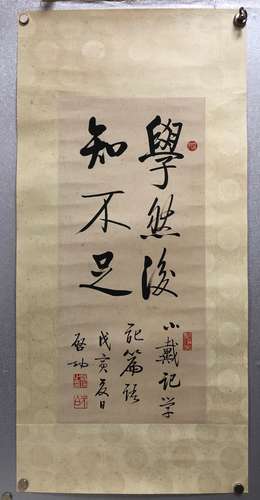 學然後
知不足
小戴记学
記篇語
戊亥夏日
启功